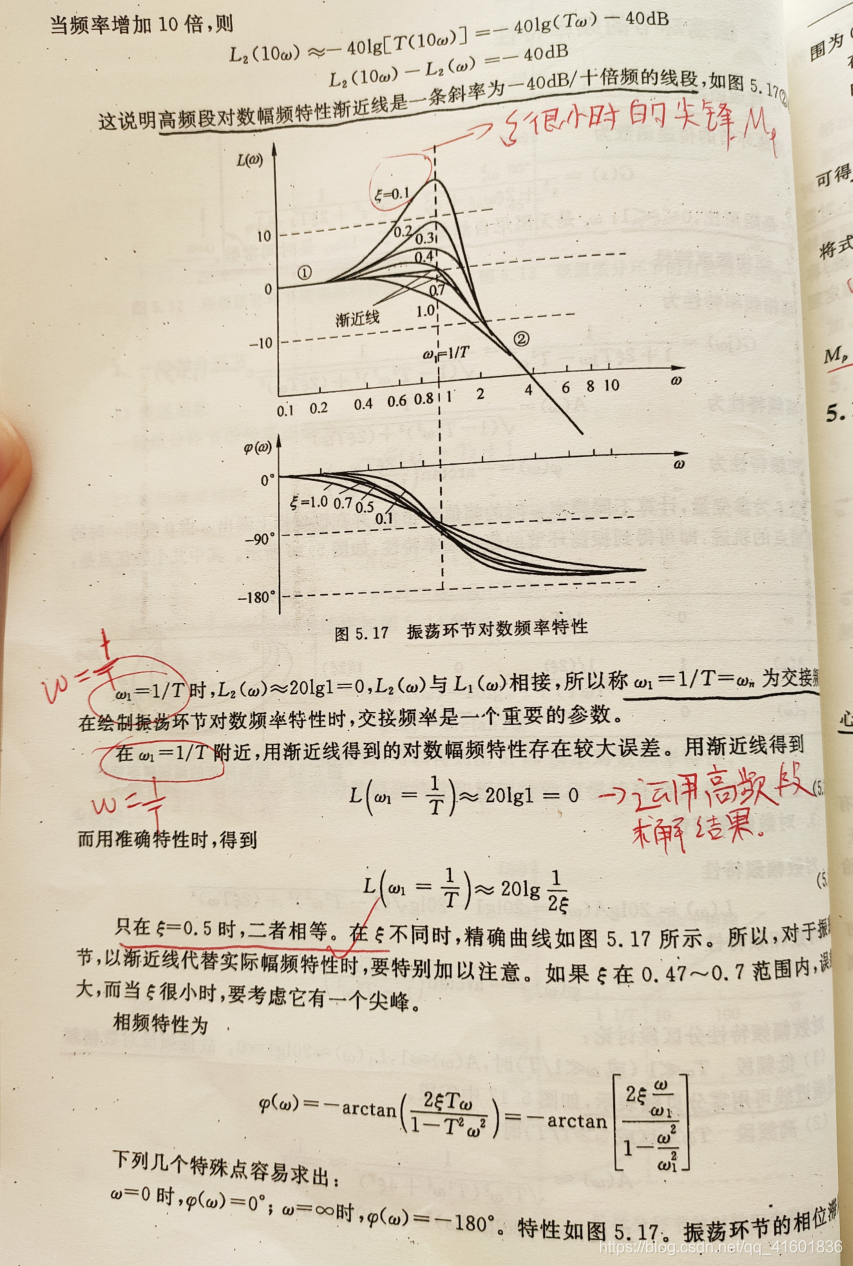 当频率增加 10 倍,则
L₂(10ω)≈−40lg[T(10ω)]=−40lg(Tω)−40dB
L₂(10ω)−L₂(ω)=−40dB
这说明高频段对数幅频特性渐近线是一条斜率为−40dB/十倍频的线段,如图 5.17②
→ξ很小时的尖锋
L(ω)
ξ=0.1
10
0.2
0.3
①
0.4
0
0.7
渐近线
1.0
−10
②
ω₁=1/T
ω
0.1 0.2 0.4 0.6 0.8 1 2 4 6 8 10
φ(ω)
ω
0°
ξ=1.0 0.7 0.5
0.1
−90°
−180°
图 5.17 振荡环节对数频率特性
ω=1/T
ω₁=1/T 时,L₂(ω)≈20lg1=0,L₂(ω)与 L₁(ω)相接,所以称 ω₁=1/T=ωₙ 为交接
在绘制振荡环节对数频率特性时,交接频率是一个重要的参数。
在 ω₁=1/T 附近,用渐近线得到的对数幅频特性存在较大误差。用渐近线得到
ω=1/T
L(ω₁ = 1/T)≈ 20lg1 = 0 →运用高频段
(5.
求解结果。
而用准确特性时,得到
L(ω₁ = 1/T)≈ 20lg 1/2ξ
(5.
只在 ξ=0.5 时,二者相等。在 ξ 不同时,精确曲线如图 5.17 所示。所以,对于振
节,以渐近线代替实际幅频特性时,要特别加以注意。如果 ξ 在 0.47～0.7 范围内,误
大,而当 ξ 很小时,要考虑它有一个尖峰。
相频特性为
φ(ω)=−arctan(2ξTω/(1−T²ω²))=−arctan[2ξ ω/ω₁/(1−ω²/ω₁²)]
下列几个特殊点容易求出:
ω=0 时,φ(ω)=0°; ω=∞时,φ(ω)=−180°。特性如图 5.17。振荡环节的相位滞
围为
可得
将式
Mₚ
5.
https://blog.csdn.net/qq_41601836